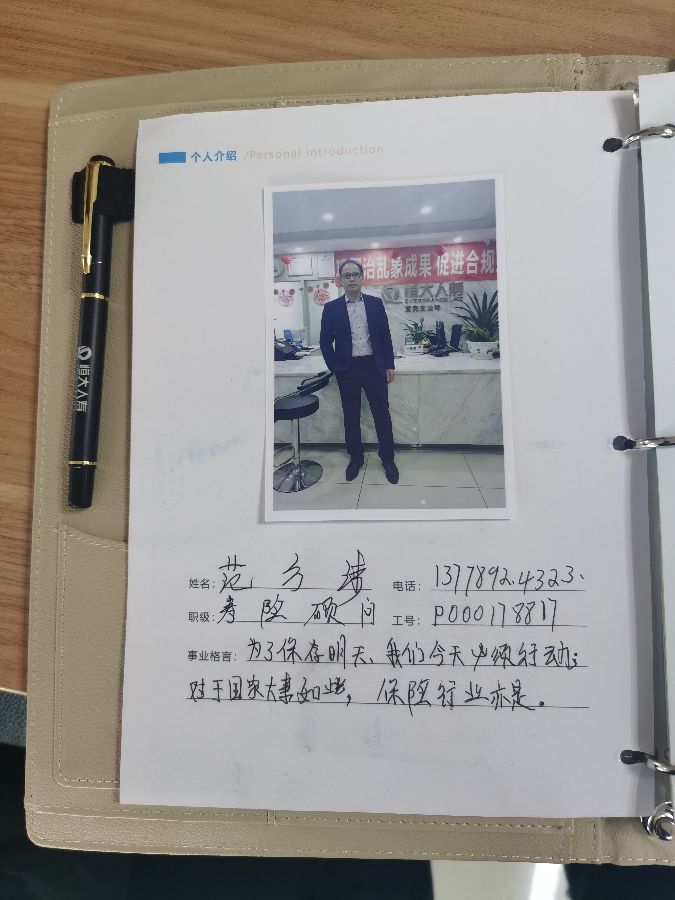 个人介绍 /Personal introduction
治乱象成果 促进合规
恒大人寿
EVERGRANDE LIFE
宜宾支公司
恒大人寿
姓名: 范方 电话: 1377892.4323.
职级: 寿险顾问 工号: P000178817
事业格言: 为了保存明天、我们今天必须行动;
对于国家大事如此, 保险行业亦是。